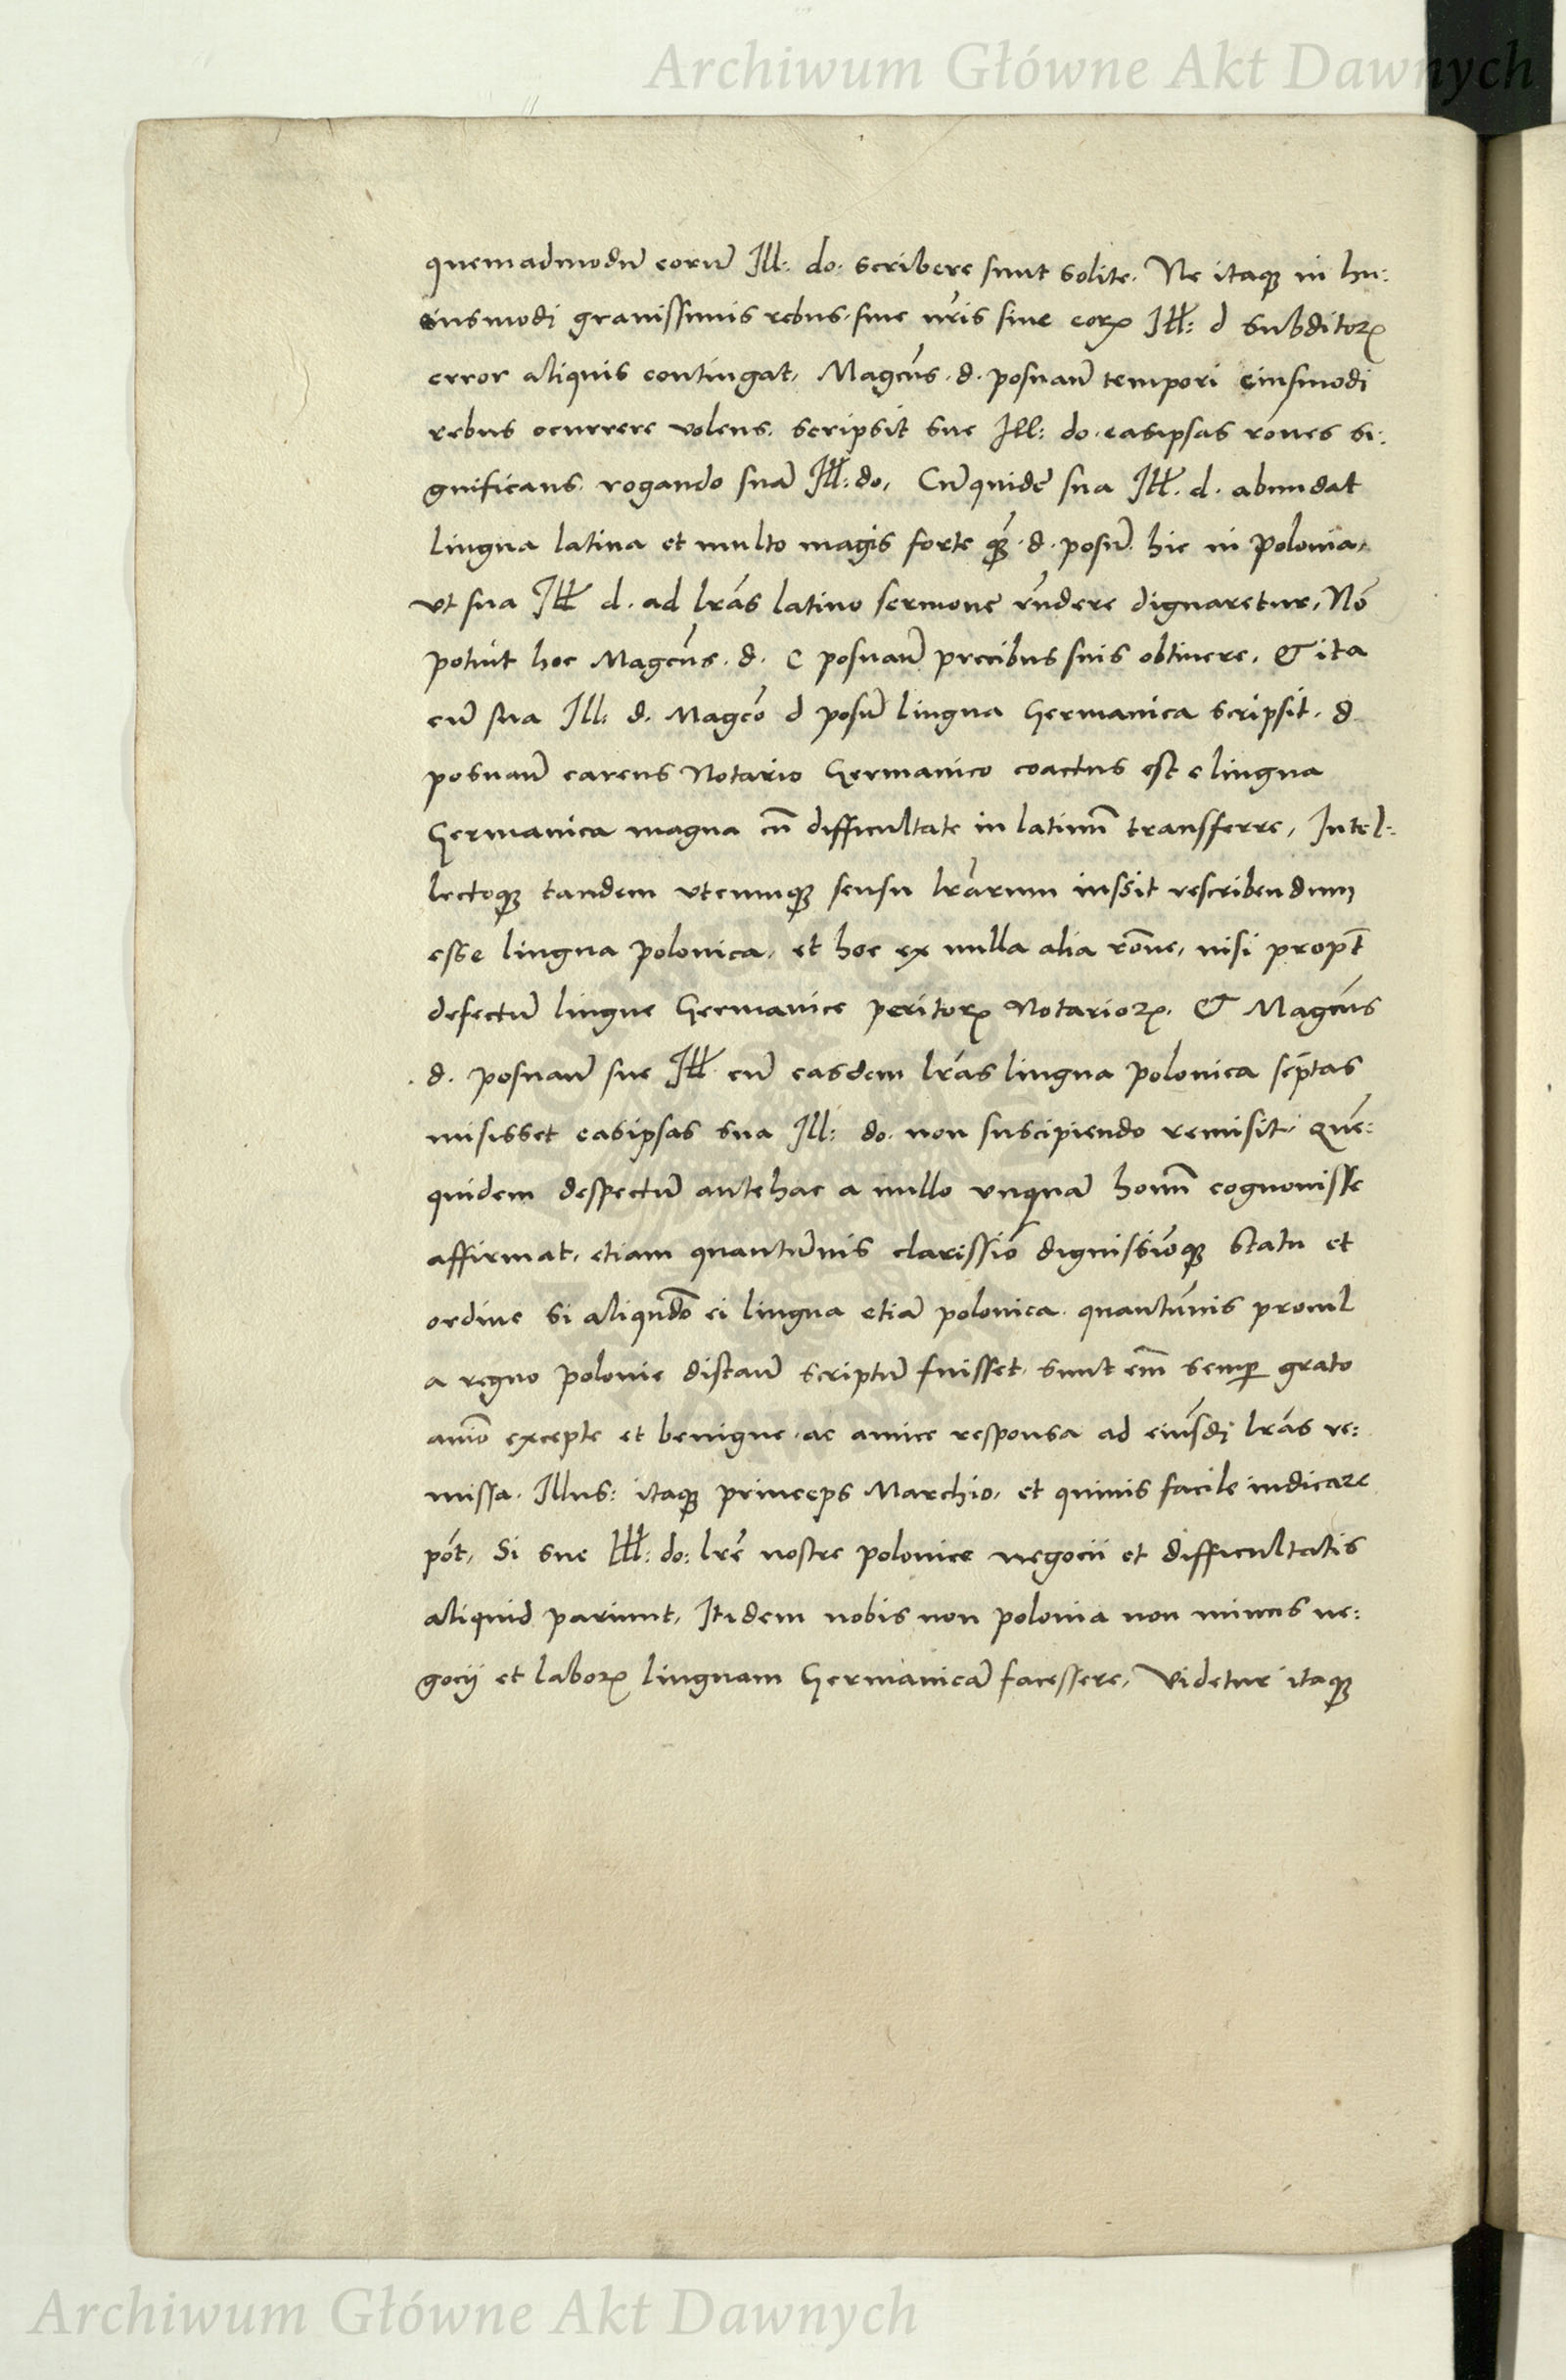 Archiwum Główne Akt Dawnych
quemadmodū eorū Ill: do: scribere sunt solite. Ne itaqꝫ in hu:
iusmodi grauissimis rebus. siue nr̄is siue eorꝝ Ill: d subditorꝝ
error aliquis contingat, Magcūs. d. posnan̄ tempori eiusmodi
rebus ocurrere volens. scripsit sue Ill: do. easipsas rōnes si:
gnificans. rogando suā Ill: do, Cū quidē sua Ill. d. abundat
lingua latina et multo magis forte qꝫ̄. d. posn̄. hic in polonia,
vt sua Ill d. ad lr̄as latino sermone rn̄dere dignaretur, Nō
potuit hoc Magcūs. d. C posnanū precibus suis obtinere. & ita
cū sua Ill: d. Magcō d posn̄ lingua Germanica scripsit. d
posnanū carens Notario Germanico coactus est e lingua
Germanica magna cū difficultate in latinū transferre, Intel:
lectoqꝫ tandem vtcumqꝫ sensu lr̄arum iussit rescribendum
esse lingua polonica, et hoc ex nulla alia rōne, nisi propt̄
defectū lingue Germanice peritorꝝ Notariorꝝ. & Magcūs
d. posnanū sue Ill cū easdem lr̄as lingua polonica scp̄tas
misisset easipsas sua Ill: do. non suscipiendo remisit. Quē:
quidem despectū antehac a nullo vnquā homī cognouisse
affirmat, etiam quantūuis clarissiō dignissiōqꝫ statu et
ordine si aliqn̄do ei lingua etiā polonica. quantūuis procul
a regno polonie distanū scriptū fuisset. sunt em̄ semꝑ grato
aniō excepte et benigne. ac amice responsa ad eiusdi lr̄as re:
missa. Illus: itaqꝫ princeps Marchio, et quiuis facile iudicare
pōt, Si sue Ill: do: lr̄e nostre polonice negocii et difficultatis
aliquid pariunt, Itidem nobis non polonia non minus ne:
gocij et laborꝝ linguam Germanicā facessere, Videtur itaqꝫ
Archiwum Główne Akt Dawnych